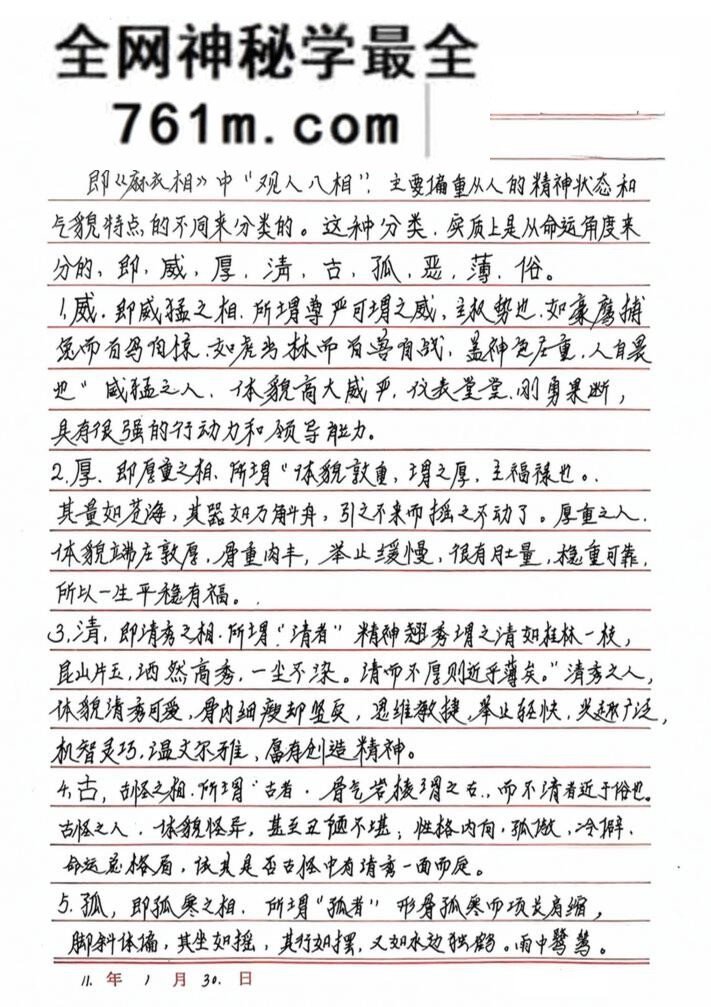 全网神秘学最全
761m.com
即《麻衣相》中“观人八相”，主要偏重从人的精神状态和
气貌特点的不同来分类的。这种分类，实质上是从命运角度来
分的，即，威，厚，清，古，孤，恶，薄，俗。
1.威．即威猛之相．所谓尊严可谓之威，主权势也．如豪鹰捕
兔而百鸟自惊．如虎出林而百兽自战，盖神色庄重，人自畏
也”威猛之人．体貌高大威严，仪表堂堂．刚勇果断，
具有很强的行动力和领导能力。
2.厚、即厚重之相．所谓“体貌敦重，谓之厚，主福禄也。．
其量如苍海，其器如万斛舟，引之不来而摇之不动了。厚重之人．
体貌端庄敦厚，骨重肉丰，举止缓慢，很有肚量，稳重可靠，
所以一生平稳有福。．
3.清，即清秀之相．所谓“清者”精神翘秀谓之清如桂林一枝，
昆山片玉，洒然高秀，一尘不染。清而不厚则近乎薄矣。”清秀之人，
体貌清秀可爱，骨肉细瘦却坚实，思维敏捷，举止轻快，兴趣广泛，
机智灵巧．温文尔雅，富有创造精神。
4.古，古怪之相．所谓“古者．骨气岩棱谓之古，而不清者近于俗也。
古怪之人．体貌怪异，甚至丑陋不堪；性格内向，孤傲，冷僻．
命运总格局，依其是否古怪中有清秀一面而定。
5.孤，即孤寒之相．所谓“孤者”形骨孤寒而项长肩缩，
脚斜体偏，其坐如摇，其行如摆．又如水边独鹤。雨中鹭鸶。
11. 年 1 月 30. 日